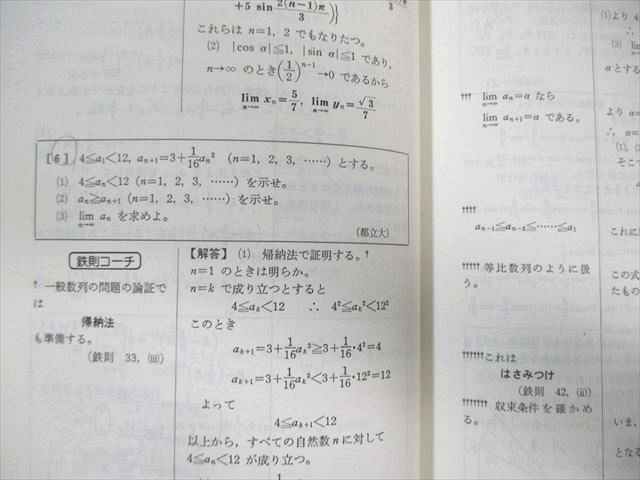 +5 sin 2(n−1)π/3)}
これらは n=1, 2 でもなりたつ。
(2) |cos α|≦1, |sin α|≦1 であり,
n→∞ のとき(1/2)ⁿ⁻¹→0 であるから
lim xₙ=5/7, lim yₙ=√3/7
n→∞ n→∞
[6] 4≦a₁<12, aₙ₊₁=3+1/16aₙ² (n=1, 2, 3, ……) とする。
(1) 4≦aₙ<12 (n=1, 2, 3, ……) を示せ。
(2) aₙ≦aₙ₊₁ (n=1, 2, 3, ……) を示せ。
(3) lim aₙ を求めよ。
n→∞
(都立大)
鉄則コーチ
† 一般数列の問題の論証で
は
帰納法
も準備する。
(鉄則 33, (iii))
【解答】 (1) 帰納法で証明する。†
n=1 のときは明らか。
n=k で成り立つとすると
4≦aₖ<12 ∴ 4²≦aₖ²<12²
このとき
aₖ₊₁=3+1/16aₖ²≧3+1/16・4²=4
aₖ₊₁=3+1/16aₖ²<3+1/16・12²=12
よって
4≦aₖ₊₁<12
以上から, すべての自然数 n に対して
4≦aₙ<12 が成り立つ。
††† lim aₙ=α なら
n→∞
lim aₙ₊₁=α である。
n→∞
††††
aₙ₋₁≦aₙ₋₂≦……≦a₁
††††† 等比数列のように扱
う。
††††††これは
はさみつけ
(鉄則 42, (ii))
††††††† 収束条件を確かめ
る。
(1)より 4
∴
(3) lim
αとする
より α=
∴ α=
(1), (2)
そこで
これに
この式
たもの
いま,
となる